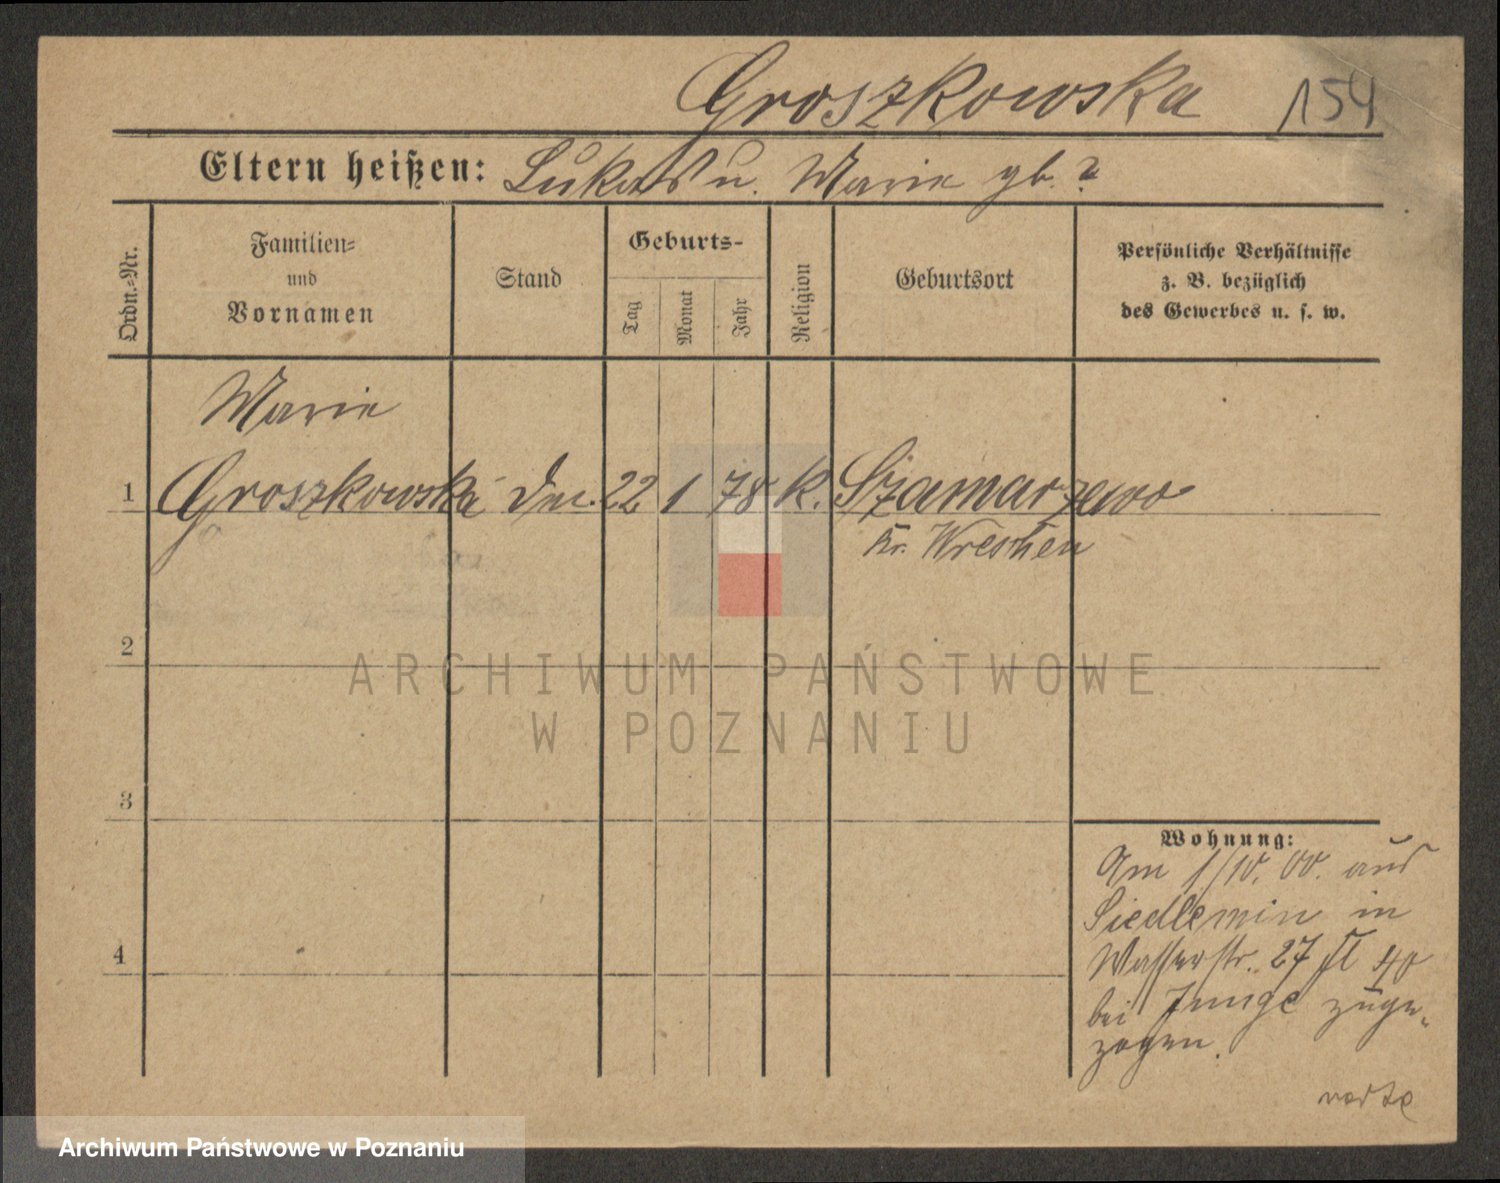 Groszkowska 154
Eltern heißen: Lukas u. Marie gb. ?
Ordn.-Nr.
Familien-
und
Vornamen
Stand
Geburts-
Tag
Monat
Jahr
Religion
Geburtsort
Persönliche Verhältnisse
z. B. bezüglich
des Gewerbes u. s. w.
Marie
1 Groszkowska 22 1 78 K. Szamarzewo
Kr. Wreschen
2
ARCHIWUM PAŃSTWOWE
W POZNANIU
3
Wohnung:
Am 1/10. 00. aus
Siedlemin in
4
Wasserstr. 27
bei Junge zuge-
zogen.
verte
Archiwum Państwowe w Poznaniu